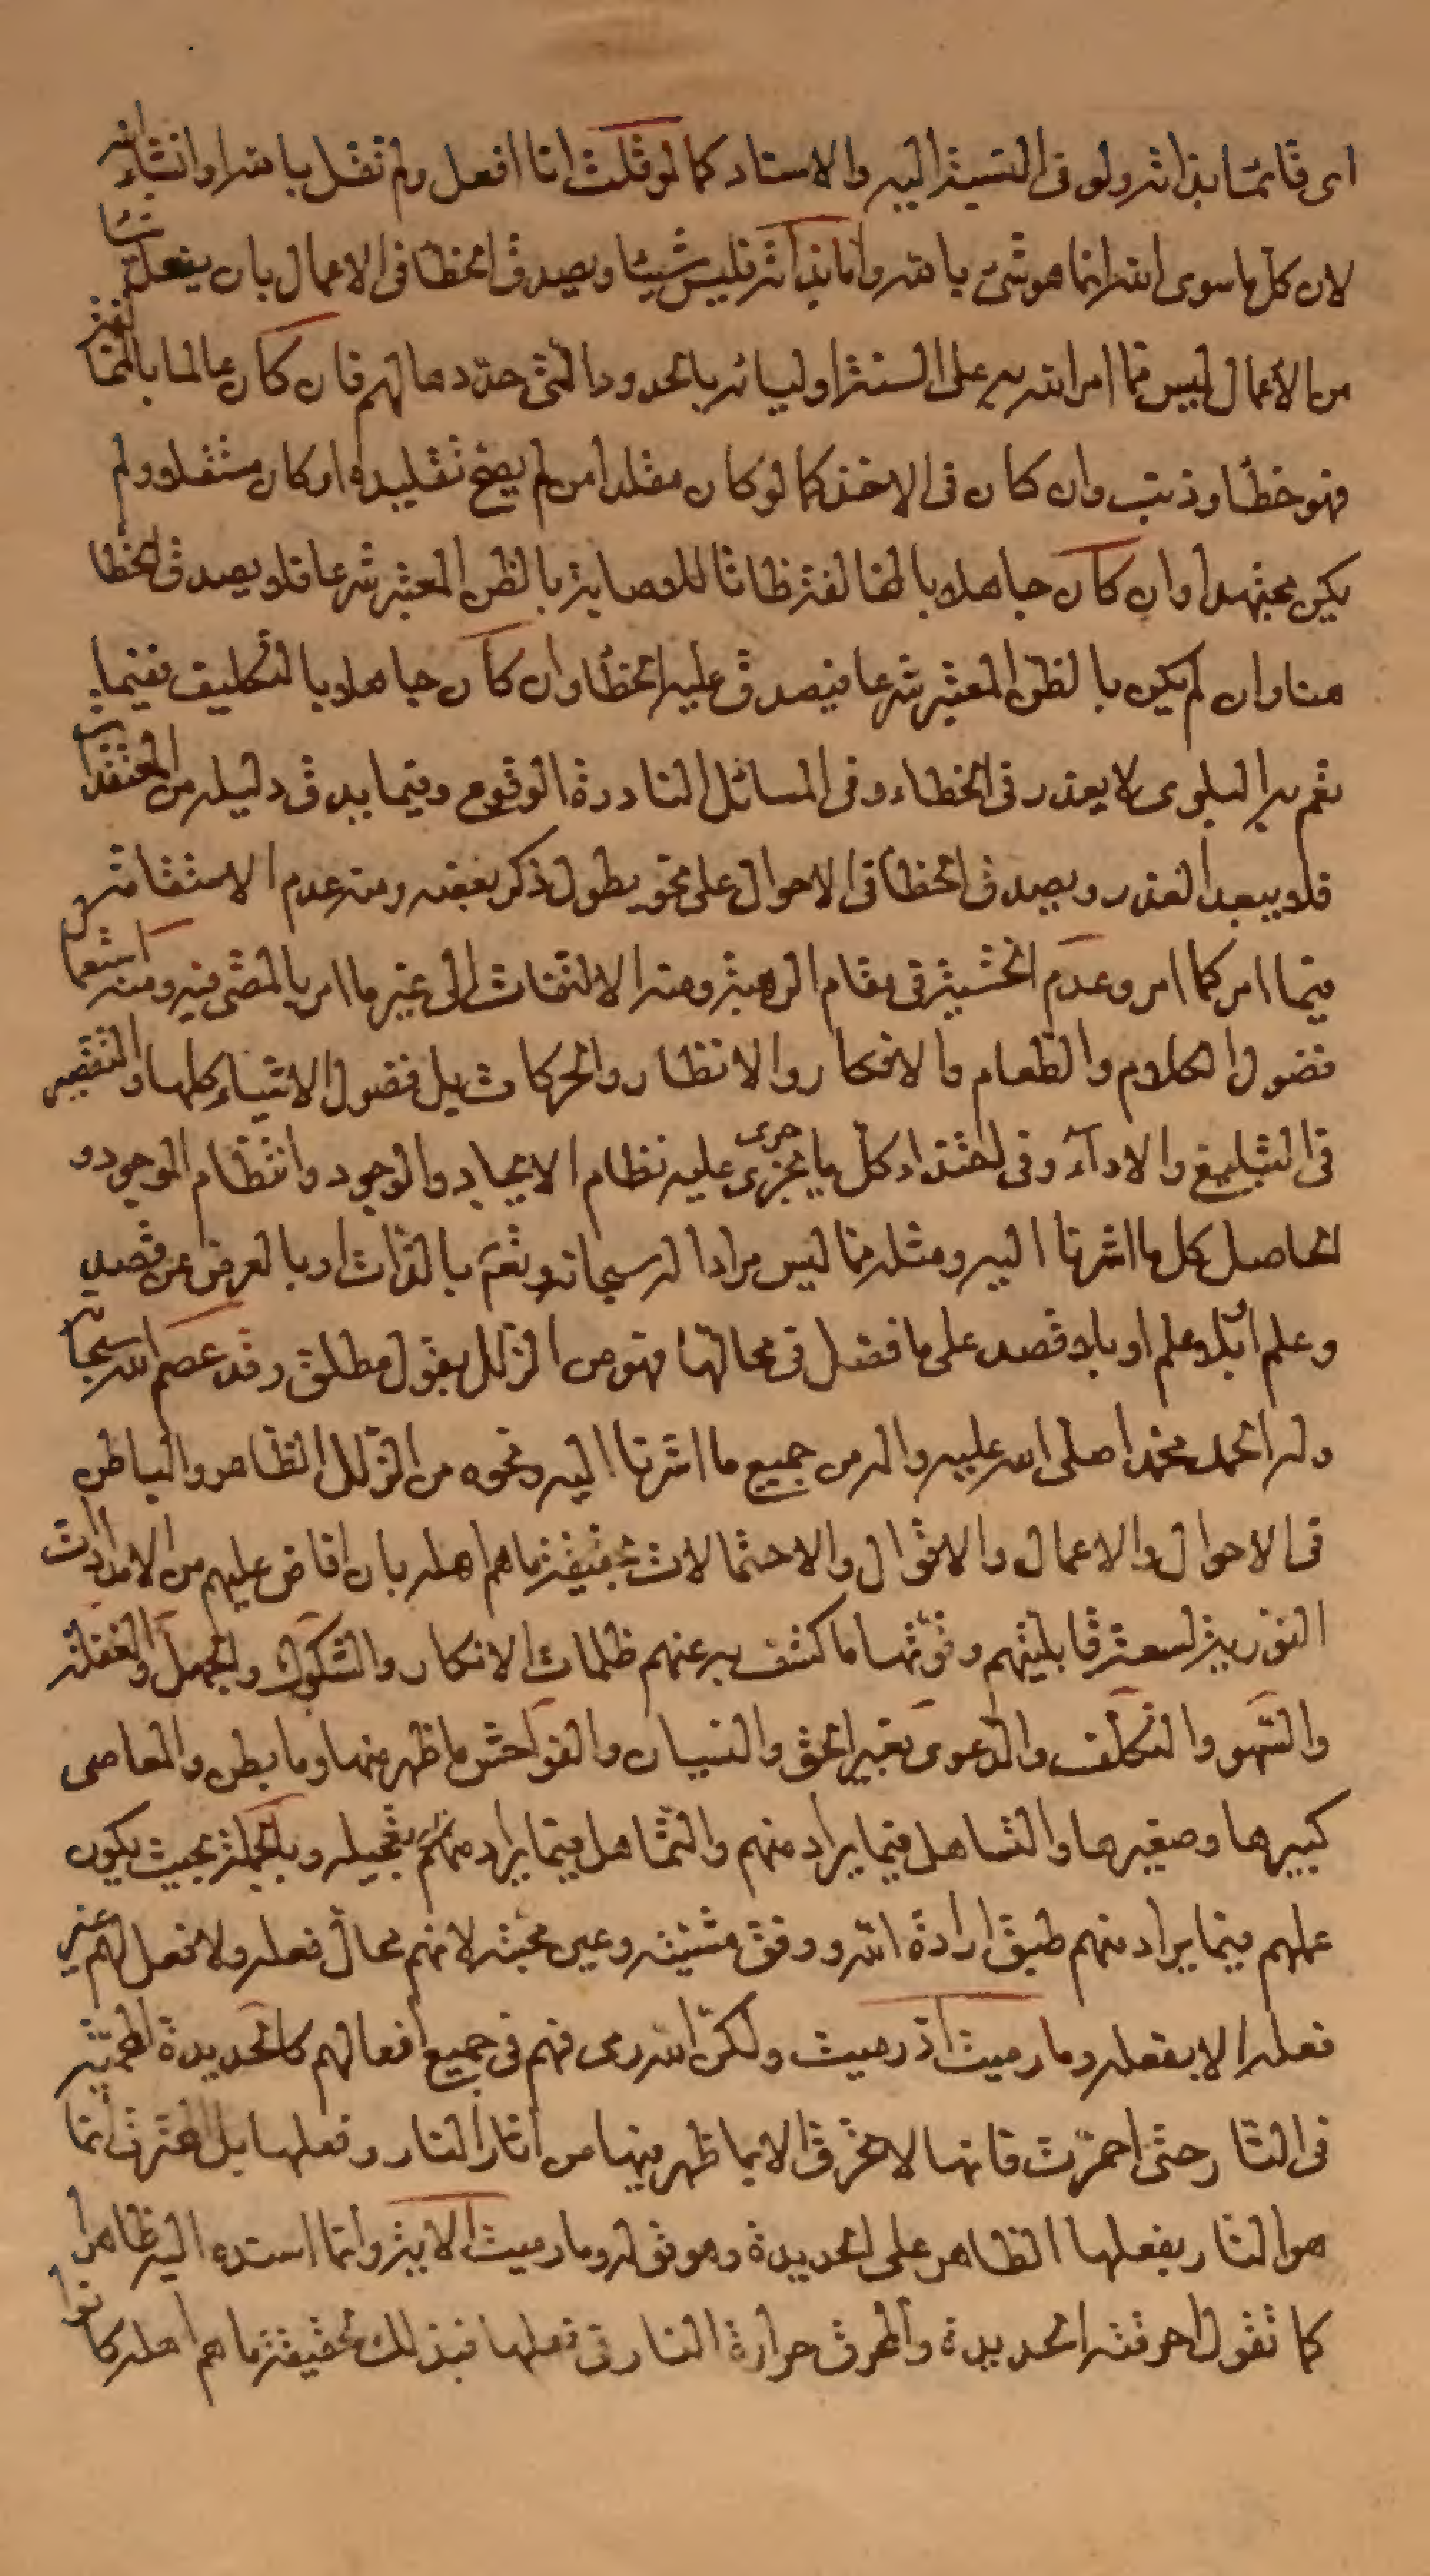 اى قائما بذاته ولو فى النسبة اليه والاسناد كما لو قلت انا افعل ولم تقل بالله او انشاء الله
لان كل ما سوى الله انما هو شىء بالله واما بذاته فليس شيئا ويصدق الخطأ فى الاعمال بان يفعل شيئا
من الأعمال ليس مما امر الله به على السنة اوليائه بالحدود التى حددها لهم فان كان عالما بالمخالفة
فهو خطأ وذنب وان كان فى الاخذ كما لو كان مقلدا من لم يصح تقليده او كان مستقلا ولم
يكن مجتهدا وان كان جاهلا بالمخالفة ظانا للاصابة بالظن المعتبر شرعا فلا يصدق الخطا
هنا وان لم يكن بالظن المعتبر شرعا فيصدق عليه الخطأ وان كان جاهلا بالتكليف ففيما
تعم به البلوى لا يعذر فى الخطاء وفى المسائل النادرة الوقوع وفيما يدق دليله من المعتقدات
فلا يبعد العذر ويصدق الخطأ فى الاحوال على نحو يطول ذكر بعضه ومنه عدم الاستقامة
فيما امر كما امر وعدم الخشية فى مقام الرهبة ومنه الالتفات الى غير ما امر بالمضى فيه ومنه استعمال
فضول الكلام والطعام والافكار والانظار والحركات بل فضول الاشياء كلها والتقصير
فى التبليغ والاداء وفى كل ما يجزى جرى عليه نظام الايجاد والوجود وانتظام الموجود و
الحاصل كل ما اشرنا اليه ومثله مما ليس مرادا له سبحانه وتعم بالذات او بالعرض عن قصد
وعلم او بلا علم او بلا قصد على ما فصل فى محالها فهو من الزلل بقول مطلق وقد عصم الله سبحانه
وله الحمد محمدا صلى الله عليه واله من جميع ما اشرنا اليه ونحوه من الزلل الظاهر والباطن
فى الاحوال والاعمال والاقوال والاحتمالات بحقيقة ما هم اهله بان افاض عليهم من الامدادات
النورية لسعة قابليتهم وقوتها ما كشف به عنهم ظلمات الانكار والشكوك والجهل والغفلة
والسهو والتكلف والدعوى بغير الحق والنسيان والفواحش ما ظهر منها وما بطن والمعاصى
كبيرها وصغيرها والتساهل فيما يراد منهم والتثاقل فيما يراد منهم تعجيله وبالجملة بحيث يكون
عملهم فيما يراد منهم طبق ارادة الله ووفق مشيته وعين محبته لانهم محال فعله ولا فعل لهم غير
فعله الا بفعله وما رميت اذ رميت ولكن الله رمى فهم فى جميع افعالهم كالحديدة المحمية
فى النار حتى احمرت فانها لا تحرق الا بما ظهر فيها من اثار النار وفعلها بل المحرق انما
هو النار بفعلها الظاهر على الحديدة وهو قوله وما رميت الاية وانما اسنده اليه ظاهرا
كما تقول احرقته الحديدة والمحرق حرارة النار فى فعلها فبذلك بحقيقة ما هم اهله كانوا